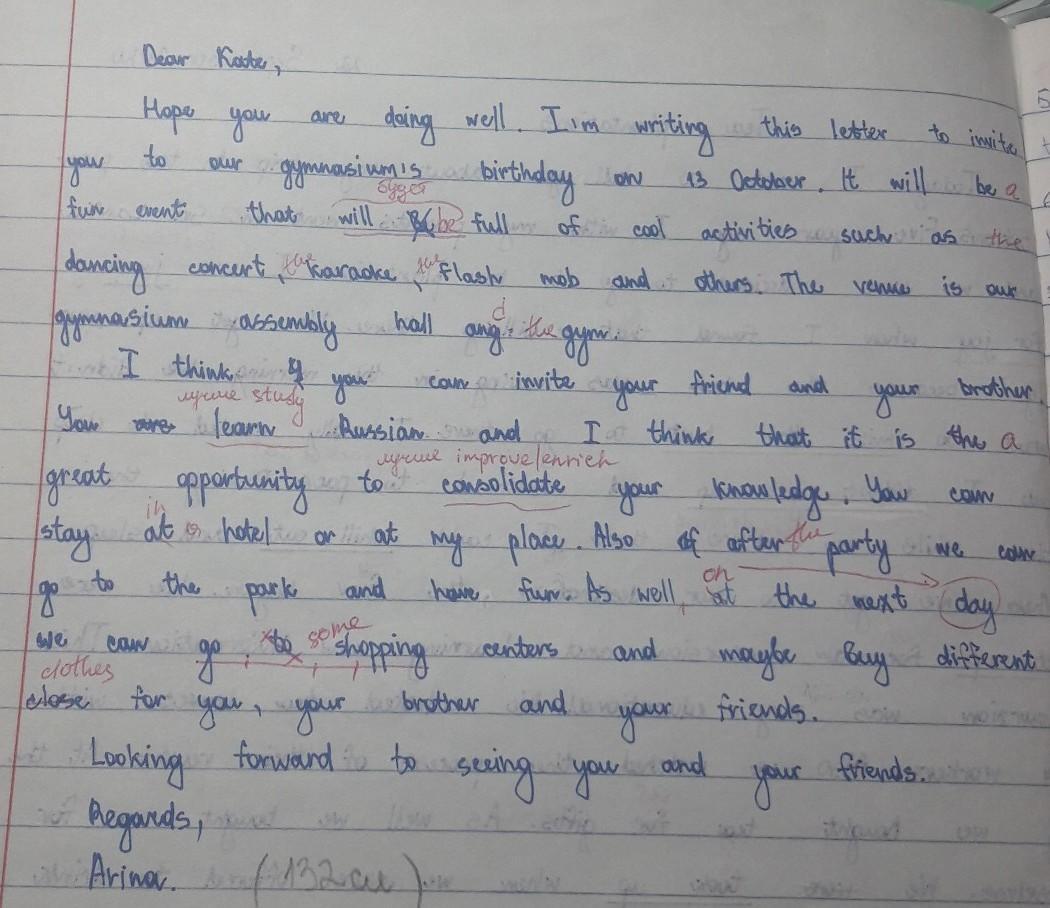 Dear Kate,
Hope you are doing well. I'm writing this letter to invite
you to our gymnasium's birthday on 13 October. It will be a
будет
fun event that will be full of cool activities such as the
dancing concert, the karaoke, the flash mob and others. The venue is our
d
gymnasium assembly hall ang the gym.
I think, you can invite your friend and your brother.
лучше study
You are learn Russian and I think that it is the a
лучше improve/enrich
great opportunity to consolidate your knowledge. You can
in
stay at a hotel or at my place. Also of after the party we can
on
go to the park and have fun. As well, at the next day
some
we can go to shopping centers and maybe buy different
clothes
close for you, your brother and your friends.
Looking forward to seeing you and your friends.
Regards,
Arina. (132 сл)